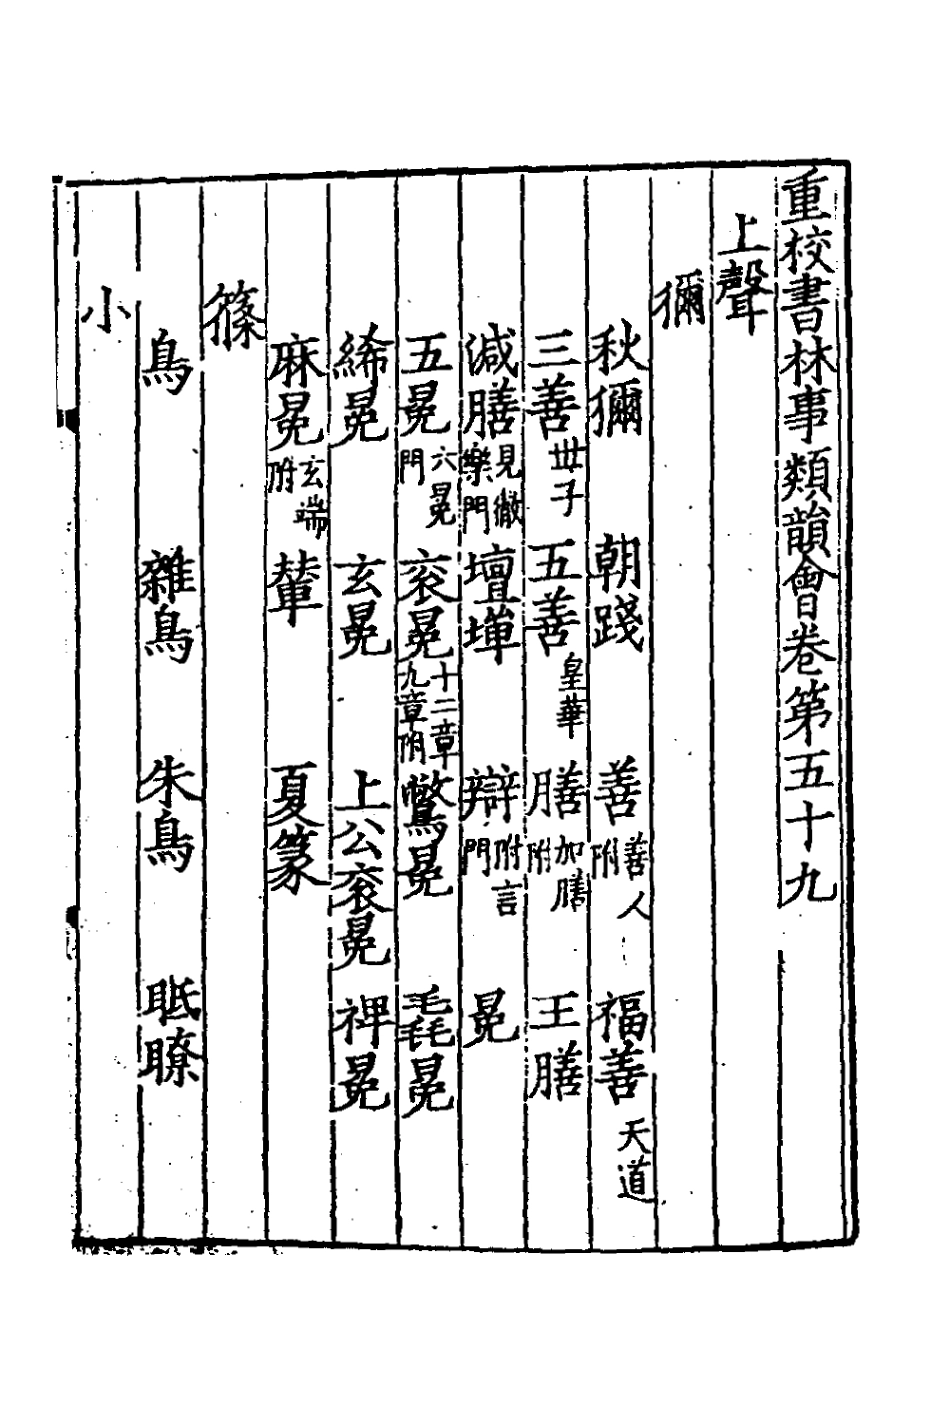 重校書林事類韻會卷第五十九
上聲
獮
秋獮 朝踐 善善人附 福善天道
三善世子 五善皇華 膳加膳附 王膳
減膳見徹樂門 壇墠 辯附言門 冕
五冕六冕門 衮冕十二章九章附 鷩冕 毳冕
絺冕 玄冕 上公衮冕 裨冕
麻冕玄端附 輦 夏篆
篠
鳥 雜鳥 朱鳥 眂瞭
小